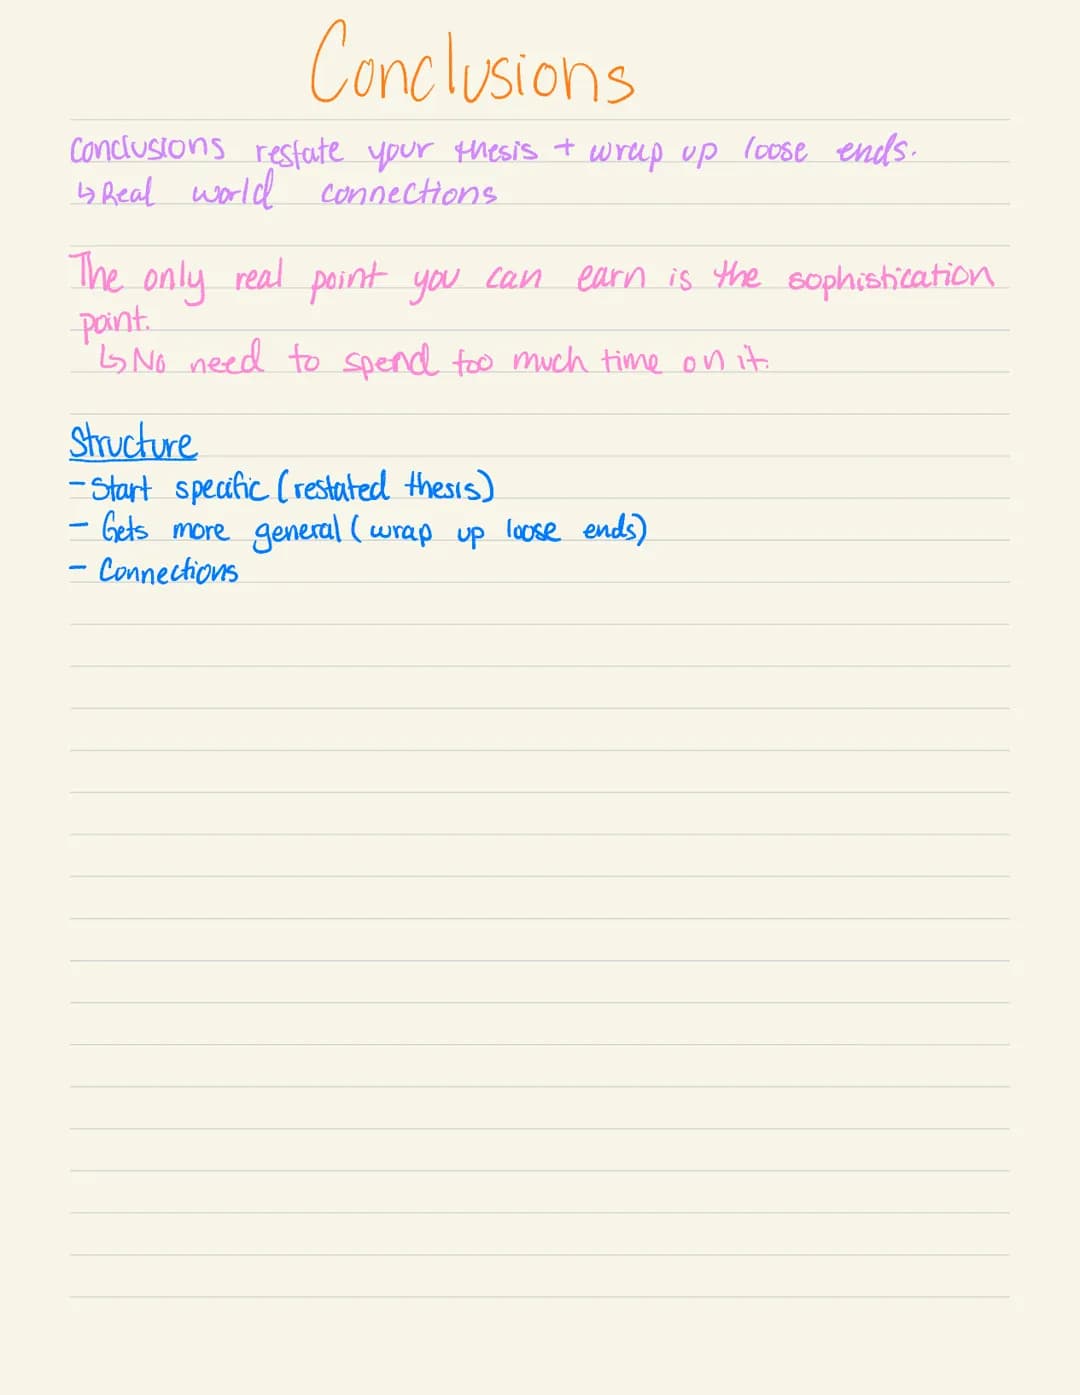 Conclusions
Conclusions restate your thesis + wrap up loose ends.
↳ Real world connections
The only real point you can earn is the sophistication
point.
↳ No need to spend too much time on it.
Structure
- Start specific (restated thesis)
- Gets more general (wrap up loose ends)
- Connections